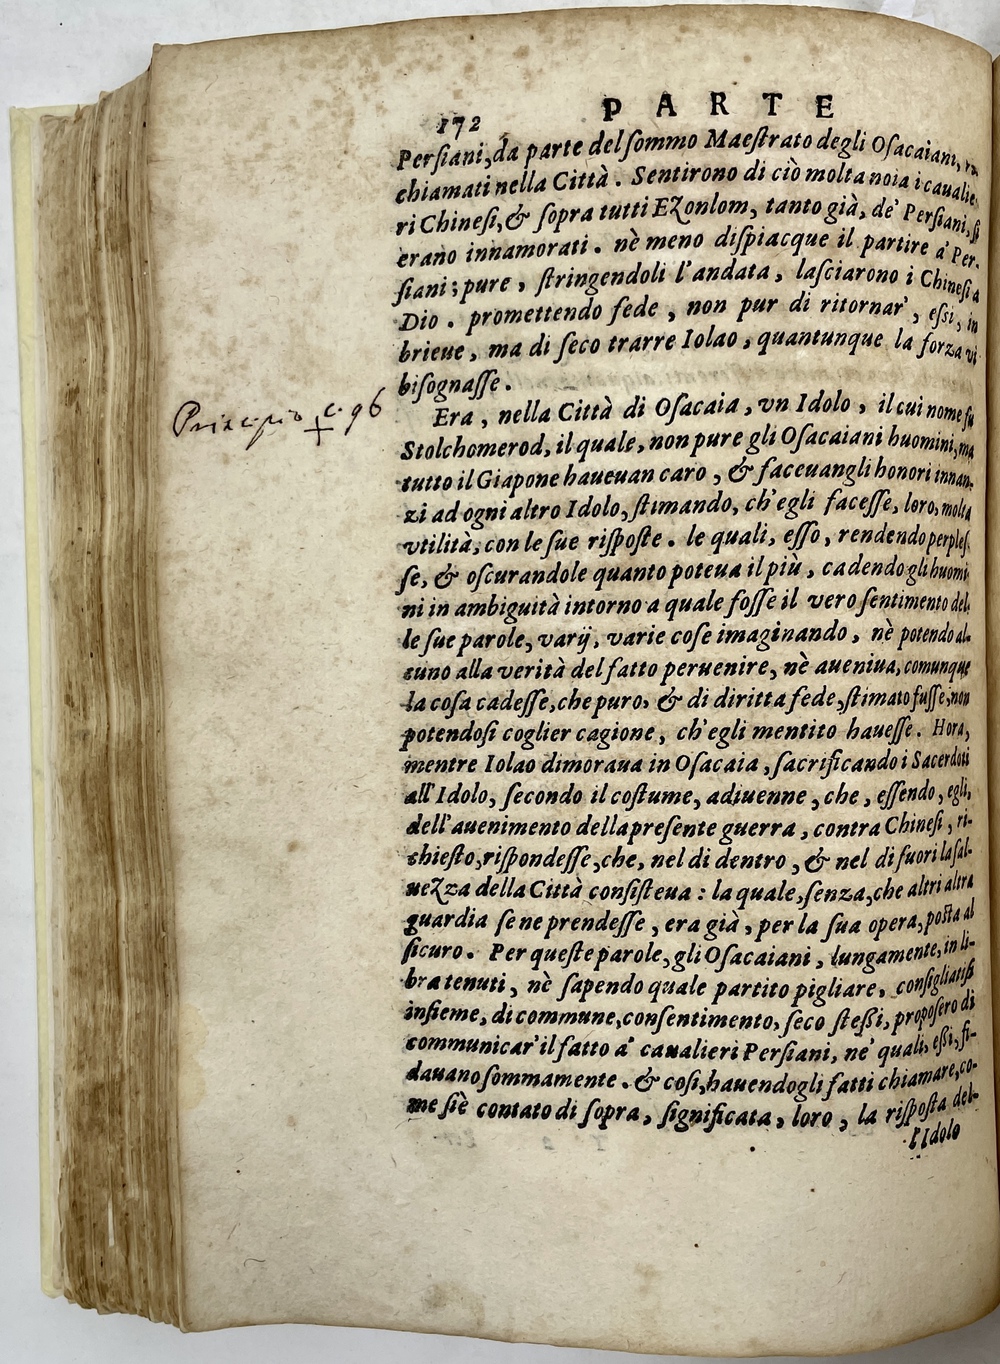 172 PARTE
Perſiani, da parte del ſommo Maeſtrato degli Oſacaiani, ra-
chiamati nella Città. Sentirono di ciò molta noia i caualie-
ri Chineſi, & ſopra tutti EZonlom, tanto già, de' Perſiani, ſi
erano innamorati. nè meno diſpiacque il partire a' Per-
ſiani; pure, ſtringendoli l'andata, laſciarono i Chineſi a
Dio. promettendo fede, non pur di ritornar', eſsi, in
brieue, ma di ſeco trarre Iolao, quantunque la forza vi
biſognaſſe.
Principio + c. 96
Era, nella Città di Oſacaia, vn Idolo, il cui nome fu
Stolchomerod, il quale, non pure gli Oſacaiani huomini, ma
tutto il Giapone haueuan caro, & faceuangli honori innan-
zi ad ogni altro Idolo, ſtimando, ch'egli faceſſe, loro, molta
vtilità, con le ſue riſpoſte. le quali, eſſo, rendendo perpleſ-
ſe, & oſcurandole quanto poteua il più, cadendo gli huomi-
ni in ambiguità intorno a quale foſſe il vero ſentimento del-
le ſue parole, varij, varie coſe imaginando, nè potendo al-
cuno alla verità del fatto peruenire, nè aueniua, comunque
la coſa cadeſſe, che puro, & di diritta fede, ſtimato fuſſe, non
potendoſi coglier cagione, ch'egli mentito haueſſe. Hora,
mentre Iolao dimoraua in Oſacaia, ſacrificando i Sacerdoti
all'Idolo, ſecondo il coſtume, adiuenne, che, eſſendo, egli,
dell'auenimento della preſente guerra, contra Chineſi, ri-
chieſto, riſpondeſſe, che, nel di dentro, & nel di fuori la ſal-
ueZza della Città conſiſteua: la quale, ſenza, che altri altra
guardia ſe ne prendeſſe, era già, per la ſua opera, poſta al
ſicuro. Per queſte parole, gli Oſacaiani, lungamente, in li-
bra tenuti, nè ſapendo quale partito pigliare, conſigliatiſi
inſieme, di commune, conſentimento, ſeco ſteßi, propoſero di
communicar' il fatto a' caualieri Perſiani, ne' quali, eßi, fi-
dauano ſommamente. & coſi, hauendogli fatti chiamare, co-
me ſiè contato di ſopra, ſignificata, loro, la riſpoſta del-
l'Idolo